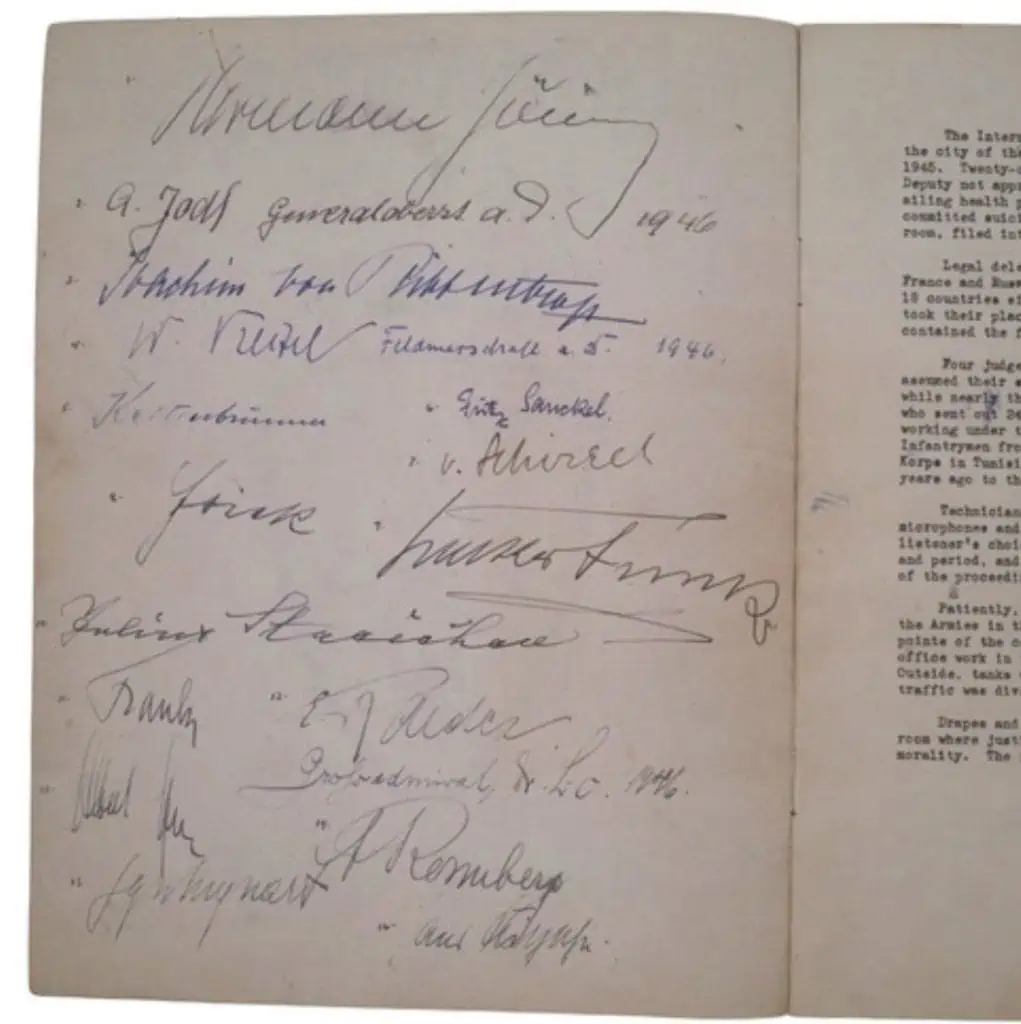 Hermann Göring
A. Jodl Generaloberst a. D. 1946
Joachim von Ribbentrop
W. Keitel Feldmarschall a. D. 1946.
Kaltenbrunner
Fritz Sauckel.
v. Schirach
Frick
Walther Funk
Julius Streicher
Frank
E. Raeder
Großadmiral, Dr. h.c. 1946.
Albert
A Rosenberg
The Intern
the city of the
1945. Twenty-o
Deputy not appr
ailing health p
committed suici
room, filed int
Legal dele
France and Russ
18 countries ei
took their plac
contained the f
Four judge
assumed their s
while nearly th
who sent out 24
working under t
Infantrymen fro
Korps in Tunisi
years ago to th
Technician
microphones and
listener's choi
and period, and
of the proceedi
Patiently,
the Armies in th
points of the co
office work in
Outside, tanks
traffic was div
Drapes and
room where just
morality. The